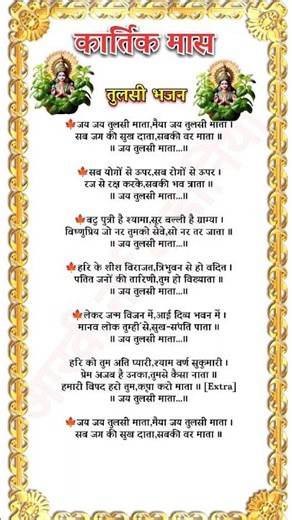 कार्तिक मास
तुलसी भजन
जय जय तुलसी माता,मैया जय तुलसी माता ।
सब जग की सुख दाता,सबकी वर माता ॥
॥ जय तुलसी माता...॥
सब योगों से ऊपर,सब रोगों से ऊपर ।
रज से रक्ष करके,सबकी भव त्राता ॥
॥ जय तुलसी माता...॥
बटु पुत्री है श्यामा,सूर बल्ली है ग्राम्या ।
विष्णुप्रिय जो नर तुमको सेवे,सो नर तर जाता ॥
॥ जय तुलसी माता...॥
हरि के शीश विराजत,त्रिभुवन से हो वंदित ।
पतित जनों की तारिणी,तुम हो विख्याता ॥
॥ जय तुलसी माता...॥
लेकर जन्म विजन में,आई दिव्य भवन में ।
मानव लोक तुम्हीं से,सुख-संपति पाता ॥
॥ जय तुलसी माता...॥
हरि को तुम अति प्यारी,श्याम वर्ण सुकुमारी ।
प्रेम अजब है उनका,तुमसे कैसा नाता ॥
हमारी विपद हरो तुम,कृपा करो माता ॥ [Extra]
॥ जय तुलसी माता...॥
जय जय तुलसी माता,मैया जय तुलसी माता ।
सब जग की सुख दाता,सबकी वर माता ॥